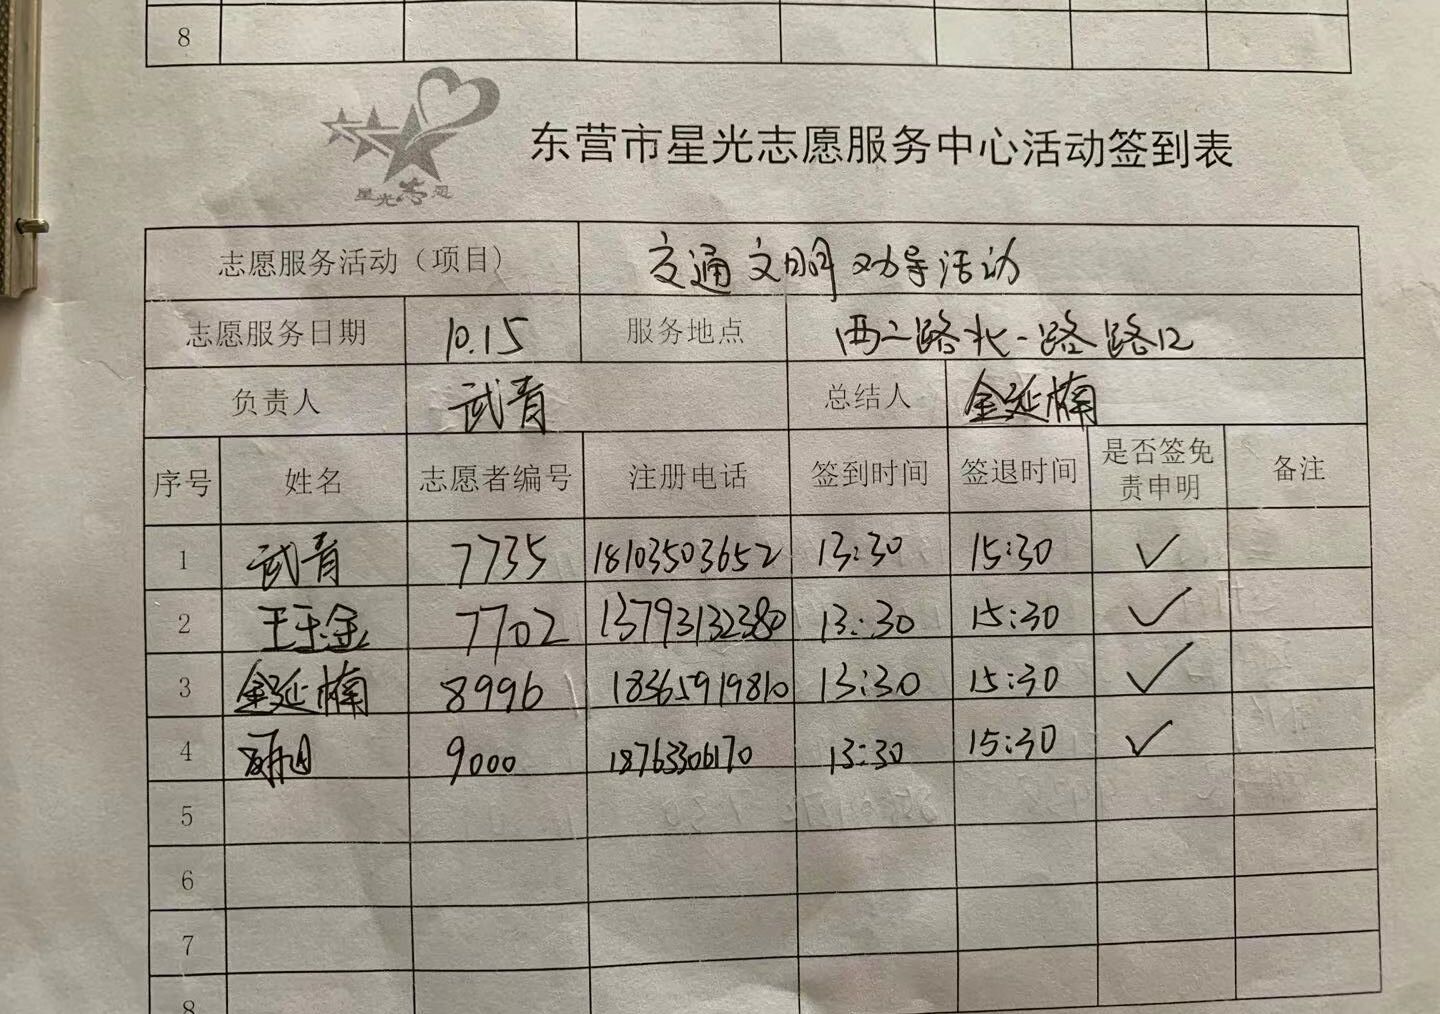 8
星光志愿
东营市星光志愿服务中心活动签到表
志愿服务活动（项目） 交通文明劝导活动
志愿服务日期 10.15 服务地点 西二路北一路路口
负责人 武青 总结人 金延楠
序号 姓名 志愿者编号 注册电话 签到时间 签退时间 是否签免责申明 备注
1 武青 7735 18103503652 13:30 15:30 ✓
2 王玉金 7702 13793132380 13:30 15:30 ✓
3 金延楠 8996 18365919810 13:30 15:30 ✓
4 9000 18763306170 13:30 15:30 ✓
5
6
7
8